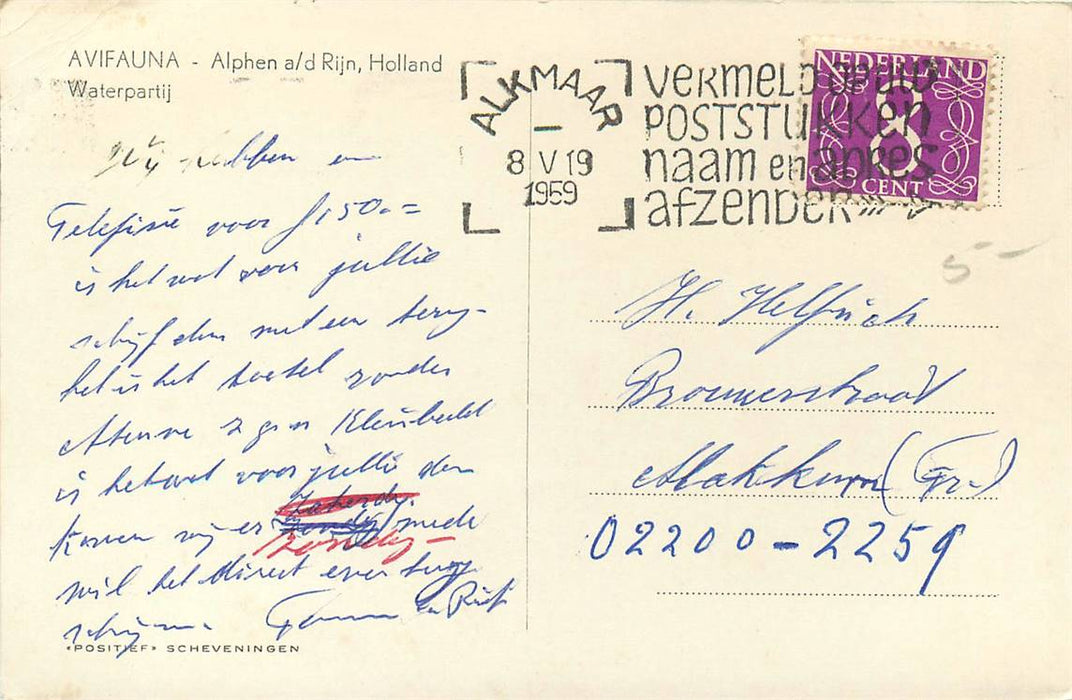 AVIFAUNA - Alphen a/d Rijn, Holland
Waterpartij
Wij hebben een
Telefisie voor f 150.=
is het wat voor jullie
schrijf dan met een terug-
het is het toestel zonder
Antenne z g n Kleinbeeld
is het wat voor jullie dan
komen wij er zondag mede
wil het direct even terug
schrijven.
en Riet
«POSITIEF» SCHEVENINGEN
ALKMAAR
8 V 19
1959
VERMELD OP UW
POSTSTUKKEN
NAAM EN ADRES
AFZENDER
NEDERLAND
8
CENT
5-
H. Helfrich
Brouwerstraat
Makkum (Fr.)
02200-2259